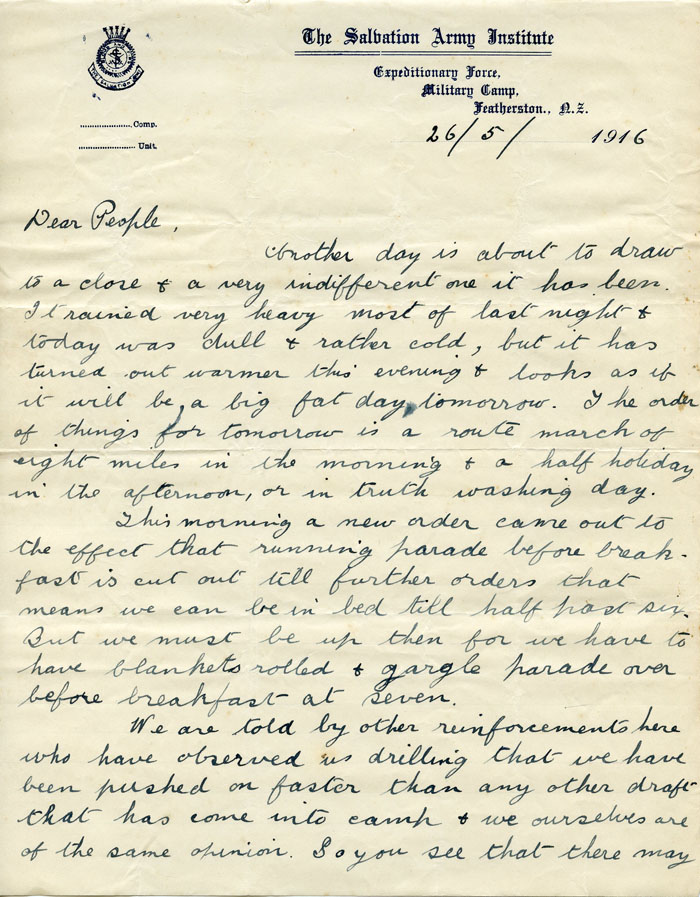 The Salvation Army Institute
Expeditionary Force,
Military Camp,
Featherston., N.Z.
.................. Comp.
.................. Unit.
26/5/ 1916
Dear People,
Another day is about to draw
to a close & a very indifferent one it has been.
It rained very heavy most of last night &
today was dull & rather cold, but it has
turned out warmer this evening & looks as if
it will be a big fat day tomorrow. The order
of things for tomorrow is a route march of
eight miles in the morning & a half holiday
in the afternoon, or in truth washing day.
This morning a new order came out to
the effect that running parade before break-
fast is cut out till further orders that
means we can be in bed till half past six.
But we must be up then for we have to
have blankets rolled & gargle parade over
before breakfast at seven.
We are told by other reinforcements here
who have observed us drilling that we have
been pushed on faster than any other draft
that has come into camp & we ourselves are
of the same opinion. So you see that there may